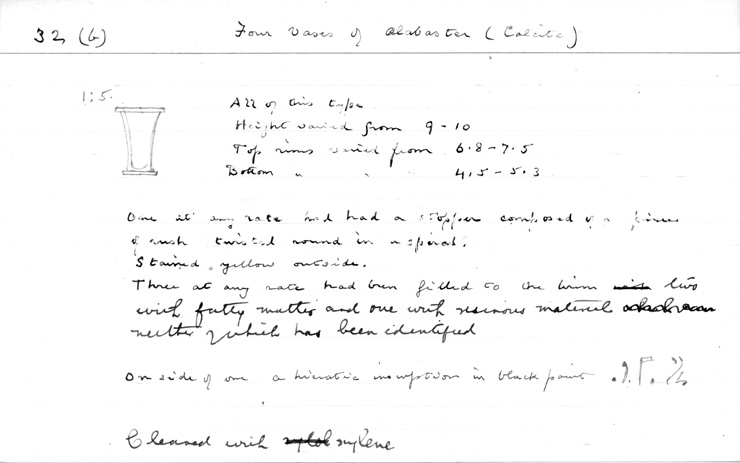 32 (b) Four Vases of Alabaster (Calcite)
1:5.
All of this type
Height varied from 9 - 10
Top rims varied from 6.8 - 7.5
Bottom " " " 4.5 - 5.3
One at any rate had had a stopper composed of a piece
of rush twisted round in a spiral.
Stained yellow outside.
Three at any rate had been filled to the brim two
with fatty matter and one with resinous material
neither of which has been identified
On side of one a hieratic inscription in black paint
Cleaned with xylene